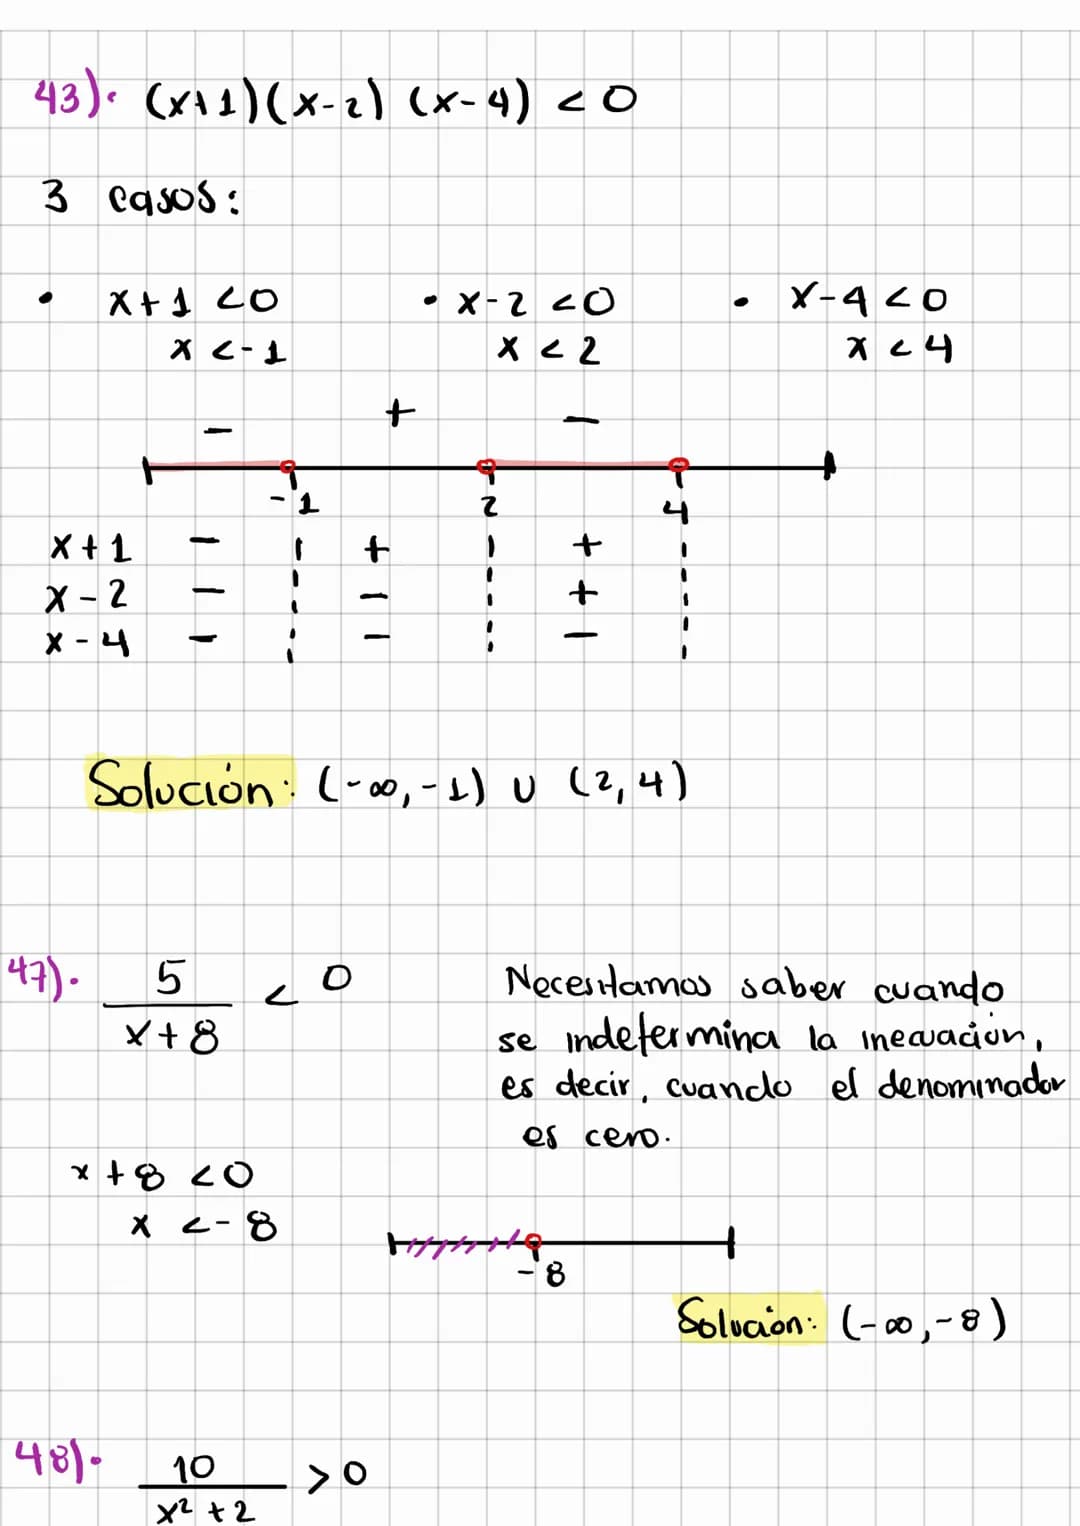 43). (x+1)(x-2) (x-4) < 0
3 casos:
• x+1 <0 • x-2 <0 • x-4 <0
x <-1 x < 2 x < 4
- + -
-1 2 4
x+1 - + +
x-2 - - +
x-4 - - -
Solución: (-∞,-1) ∪ (2,4)
47). 5/(x+8) < 0
Necesitamos saber cuando
se indetermina la inecuación,
es decir, cuando el denominador
es cero.
x+8 <0
x <-8
-8
Solución: (-∞,-8)
48). 10/(x²+2) >0